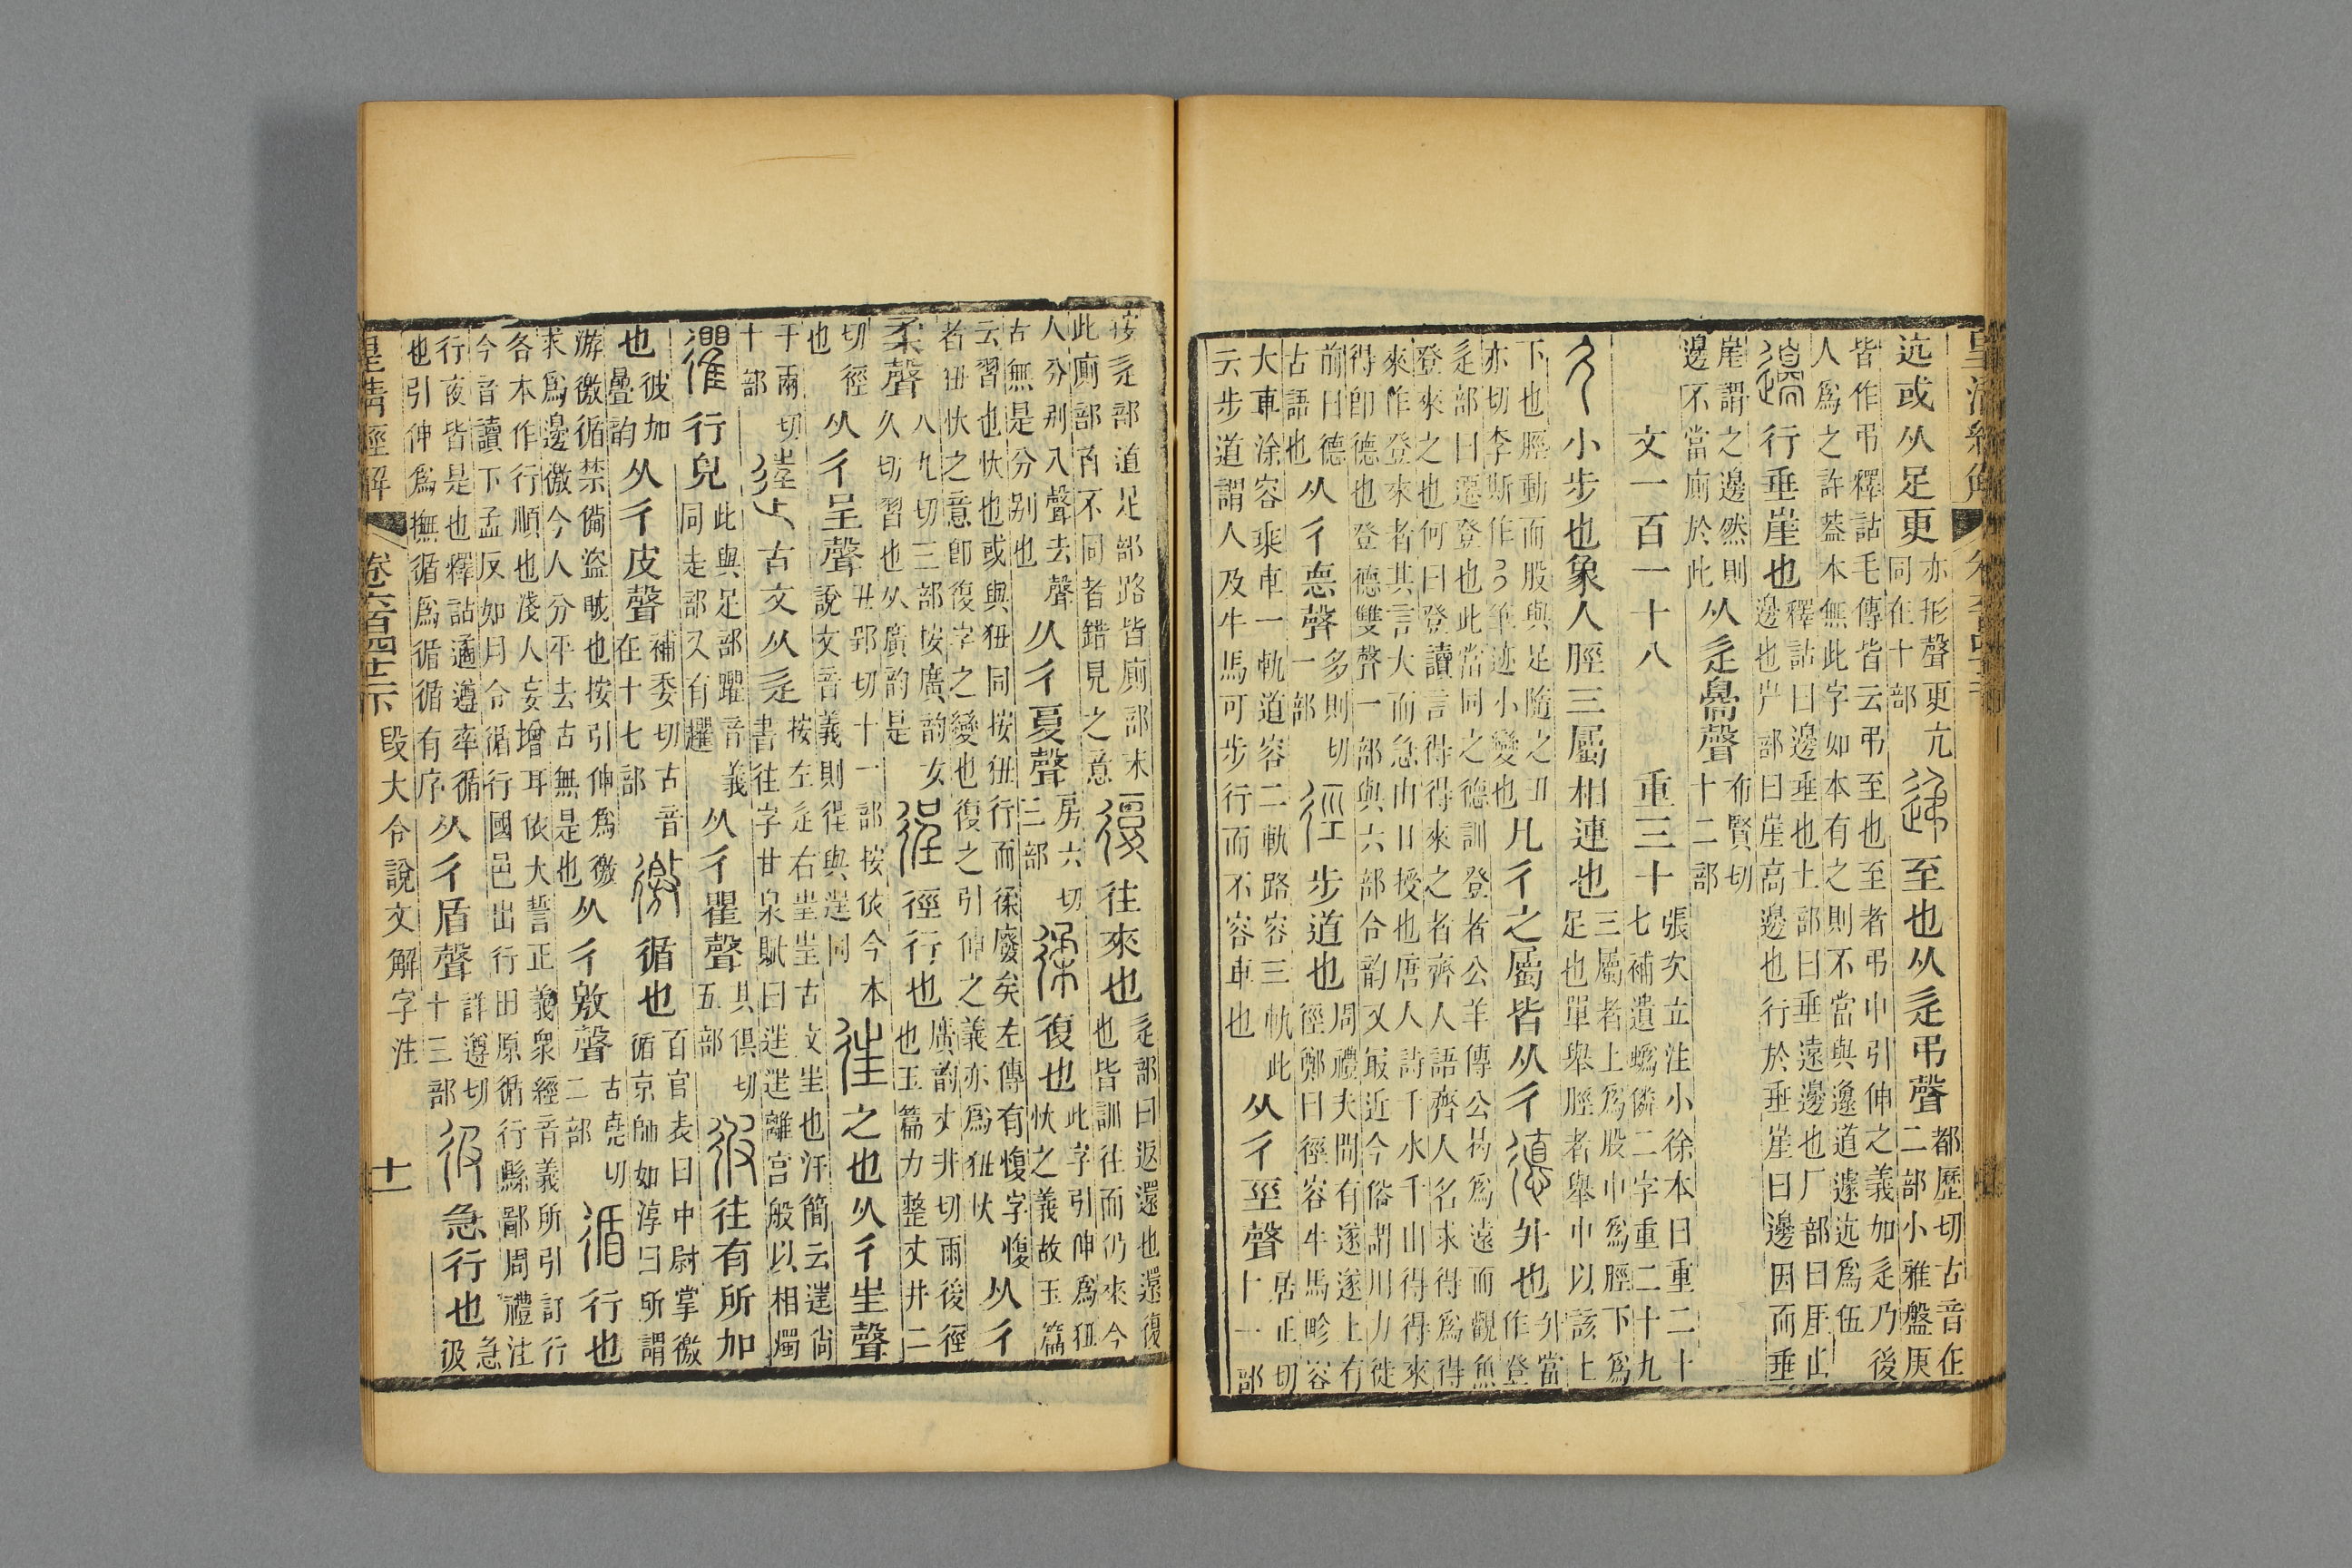 皇清經解
迒或从足更
亦形聲更亢
同在十部
至也从辵弔聲
都歷切古音在
二部小雅盤庚
皆作弔釋詁毛傳皆云弔至也至者弔中引伸之義加辵乃後
人爲之許葢本無此字如本有之則不當與邍道遽迒爲伍
行垂崖也
釋詁曰邊垂也土部曰垂遠邊也厂部曰厓山
邊也屵部曰崖高邊也行於垂崖曰邊因而垂
崖謂之邊然則
邊不當廁於此
从辵臱聲
布賢切
十二部
文一百一十八 重三十
張次立注小徐本曰重二十
七補遺二字重二十九
彳小步也象人脛三屬相連也
三屬者上爲股中爲脛下爲
足也單舉脛者舉中以該上
下也脛動而股與足隨之丑
亦切李斯作筆迹小變也
凡彳之屬皆从彳
德升也
升當
作登
辵部曰遷登也此當同之德訓登者公羊傳公曷爲遠而觀魚
登來之也何曰登讀言得得來之者齊人語齊人名求得爲得
來作登來者其言大而急由口授也唐人詩千水千山得得來
得卽德也登德雙聲一部與六部合韵又㝡近今俗謂用力徙
前曰德
古語也
从彳悳聲
多則切
一部
徑步道也
周禮夫間有遂遂上有
徑鄭曰徑容牛馬畛容
大車涂容乘車一軌道容二軌路容三軌此
云步道謂人及牛馬可步行而不容車也
从彳巠聲
居正切
十一部
按辵部道足部路皆廁部末
此廁部首不同者錯見之意
復往來也
辵部曰返還也還復
也皆訓往而仍來今
人分別入聲去聲
古無是分別也
从彳夏聲
房六切
三部
復也
此字引伸爲狃
忕之義故玉篇
云習也忕也或與狃同按狃行而猱廢矣左傳有愎字愎
者狃忕之意卽復字之變也復之引伸之義亦爲狃忕
从彳
柔聲
人九切三部按廣韵女
久切習也从廣韵是
徎徑行也
廣韵丈井切雨後徑
也玉篇力整丈井二
切徑
也
从彳呈聲
丑郢切十一部按依今本
說文音義則徎與逞同
往之也从彳㞷聲
于兩切
十部
古文从辵
按左辵右㞷㞷古文㞷也汗簡云𨓹尙
書往字甘泉賦曰𨓹𨓹離宮般以相燭
忂行皃
此與足部躍音義
同走部又有趯
从彳瞿聲
其俱切
五部
彼往有所加
也
彼加
曡韵
从彳皮聲
補委切古音
在十七部
徼循也
百官表曰中尉掌徼
循京師如淳曰所謂
游徼循禁僃盜賊也按引伸爲徼
求爲邊徼今人分平去古無是也
从彳敫聲
古堯切
二部
循行也
各本作行順也淺人妄增耳依大誓正義衆經音義所引訂行
今音讀下孟反如月令循行國邑出行田原循行縣鄙周禮注
行夜皆是也釋詁遹遵率循
也引伸爲撫循爲循循有序
从彳盾聲
詳遵切
十三部
彶急行也
急
彶
皇清經解 卷六百四十二下 段大令說文解字注 十一